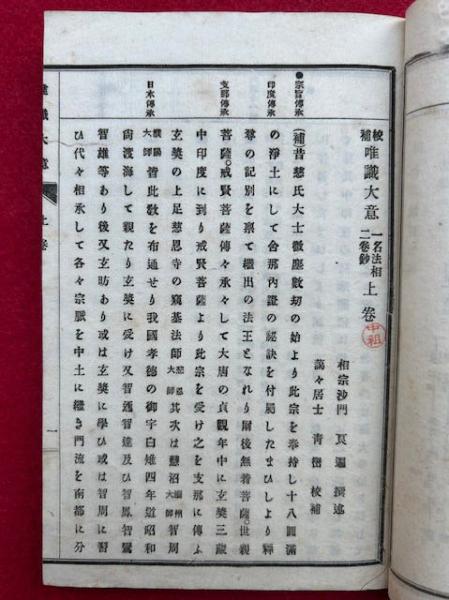 校補 唯識大意 一名法相二巻鈔 上巻
中祖
相宗沙門 良遍 撰述
藹々居士 青巒 校補
●宗旨傳承
(補)昔慈氏大士微塵數劫の始より此宗を奉持し十八圓滿
印度傳承
の淨土にして舍那内證の祕訣を付屬したまひしより釋
尊の記別を禀て繼出の法王となれり爾後無着菩薩。世親
支那傳承
菩薩。戒賢菩薩傳々承々して大唐の貞觀年中に玄奘三藏
中印度に到り戒賢菩薩より此宗を受け之を支那に傳ふ
玄奘の上足慈恩寺の窺基法師慈恩大師其次は慧沼淄州大師智周
日本傳承
濮陽大師皆此敎を布通せり我國孝德の御宇白雉四年道昭和
尚渡海して親たり玄奘に受け又智通智達及ひ智鳳智鸞
智雄等あり後又玄昉あり或は玄奘に學ひ或は智周に習
ひ代々相承して各々宗脈を中土に繼き門流を南都に分
唯識大意 上卷
一